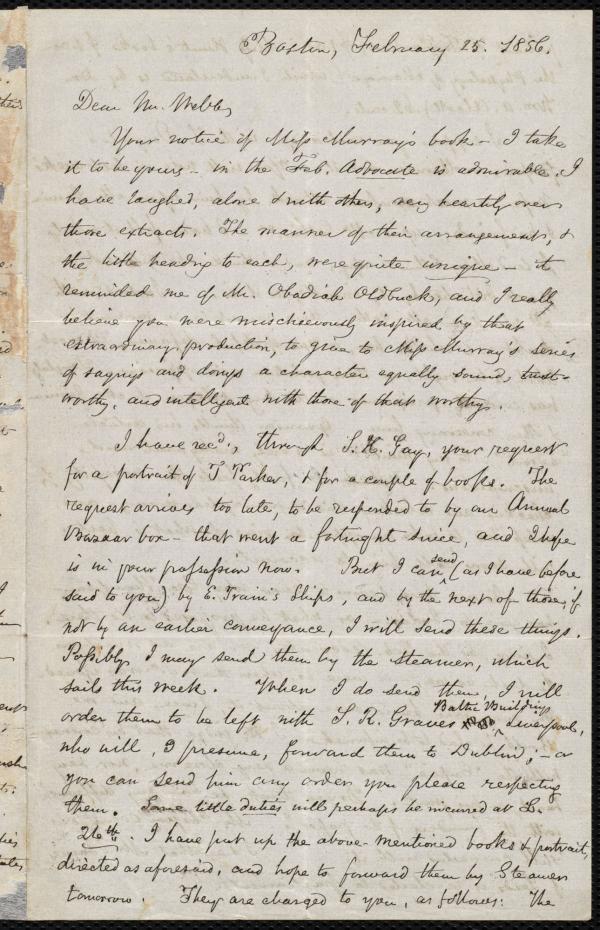 Boston, February 25. 1856.
Dear Mr. Webb,
Your notice of Miss Murray's book - I take
it to be yours - in the Feb. Advocate is admirable. I
have laughed, alone & with others, very heartily over
those extracts. The manner of their arrangements, &
the little heading to each, were quite unique - it
reminded me of Mr. Obadiah Oldbuck, and I really
believe you were mischievously inspired by that
extraordinary production, to give to Miss Murray's series
of sayings and doings a character equally sound, trust-
worthy, and intelligent with those of that worthy.
I have recd., through S. H. Gay, your request
for a portrait of T Parker, & for a couple of books. The
request arrives too late, to be responded to by our Annual
Bazaar box - that went a fortnight since, and I hope
is in your possession now. But I can send (as I have before
said to you) by E. Train's Ships, and by the next of those, if
not by an earlier conveyance, I will send these things.
Possibly I may send them by the steamer, which
sails this week. When I do send them, I will
order them to be left with S. R. Graves Baltic Buildings Liverpool,
who will, I presume, forward them to Dublin; - or
you can send him any order you please respecting
them. Some little duties will perhaps be incurred at L.
26th. I have put up the above-mentioned books & portrait,
directed as aforesaid, and hope to forward them by Steamer
tomorrow. They are charged to you, as follows: The